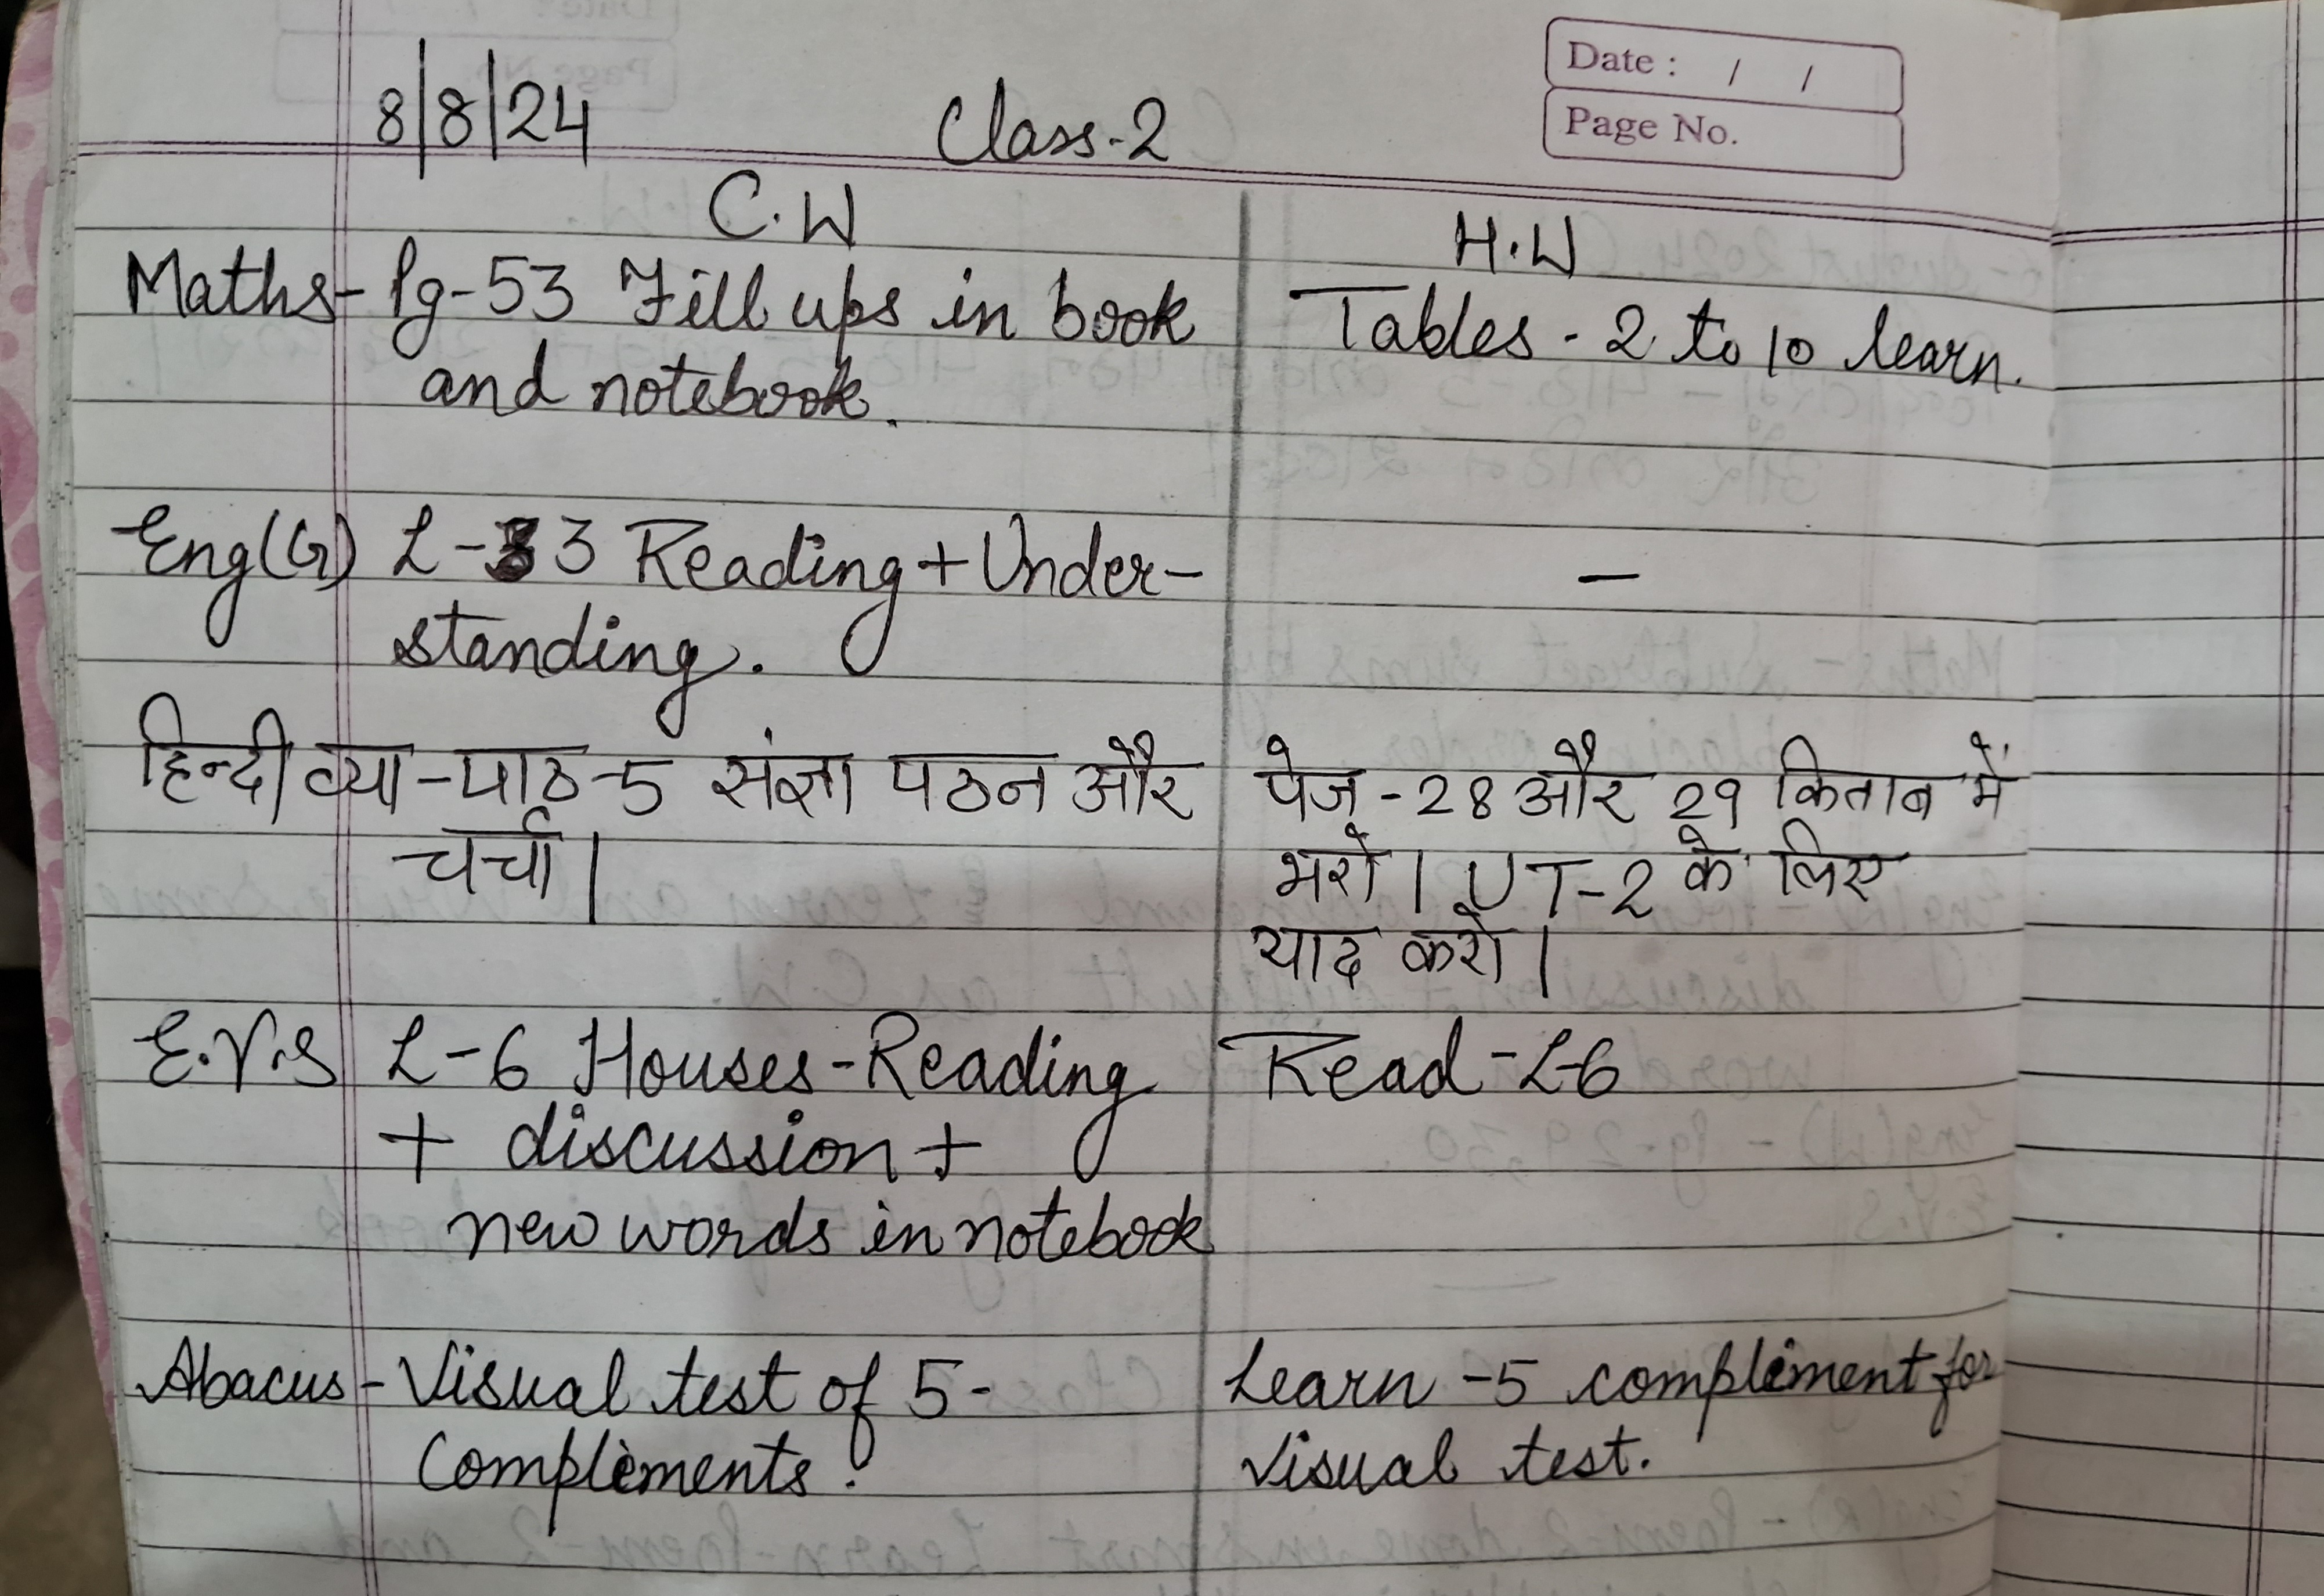 Date : / /
Page No.
8/8/24 Class-2
C.W
H.W
Maths- Pg-53 Fill ups in book
and notebook.
Tables - 2 to 10 learn.
Eng(G) L-3 Reading + Under-
standing.
-
हिन्दी व्या-पाठ-5 संज्ञा पठन और
चर्चा।
पेज-28 और 29 किताब में
भरो। UT-2 के लिए
याद करो।
E.V.S L-6 Houses-Reading
+ discussion +
new words in notebook
Read-L-6
Abacus - Visual test of 5-
Compliments.
Learn -5 compliment for
visual test.